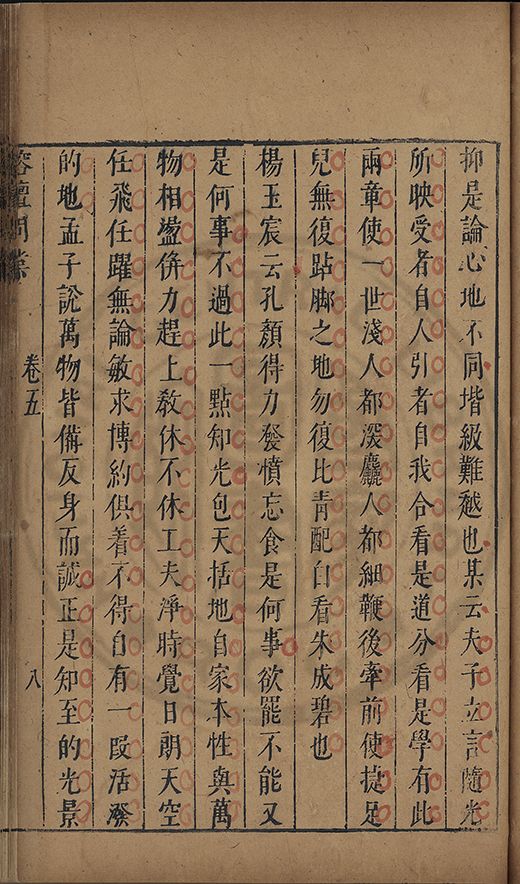 抑是論心地不同堦級難越也某云夫子立言隨光
所映受者自人引者自我合看是道分看是學有此
兩章使一世淺人都深麤人都細鞭後牽前使捷足
兒無復跕脚之地勿復比青配白看朱成碧也
楊玉宸云孔顏得力發憤忘食是何事欲罷不能又
是何事不過此一點知光包天括地自家本性與萬
物相盪併力趕上敎休不休工夫淨時覺日朗天空
任飛任躍無論敏求博約俱着不得自有一段活潑
的地孟子說萬物皆備反身而誠正是知至的光景
榕壇問業
卷五
八